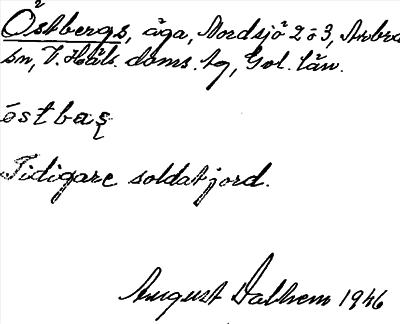 Östbergs, äga, Nordsjö 2 o 3, Arbrå
sn, V. Häls. doms. tg, Gol. län.
östbaʂ
Tidigare soldatjord.
August Dalhem 1946